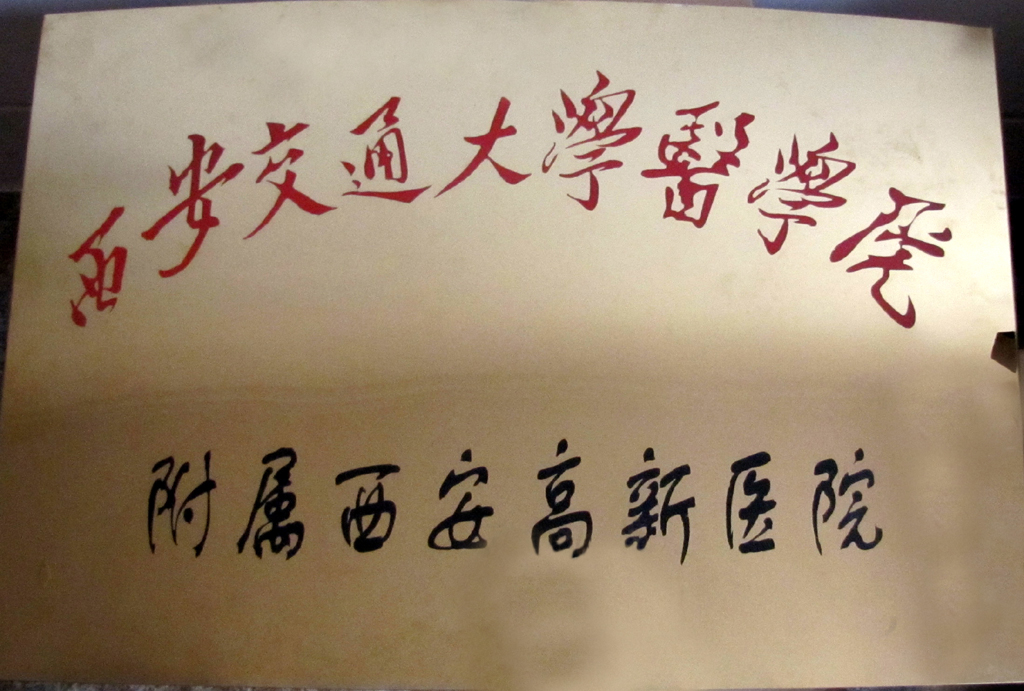 西安交通大學醫學院
附属西安高新医院